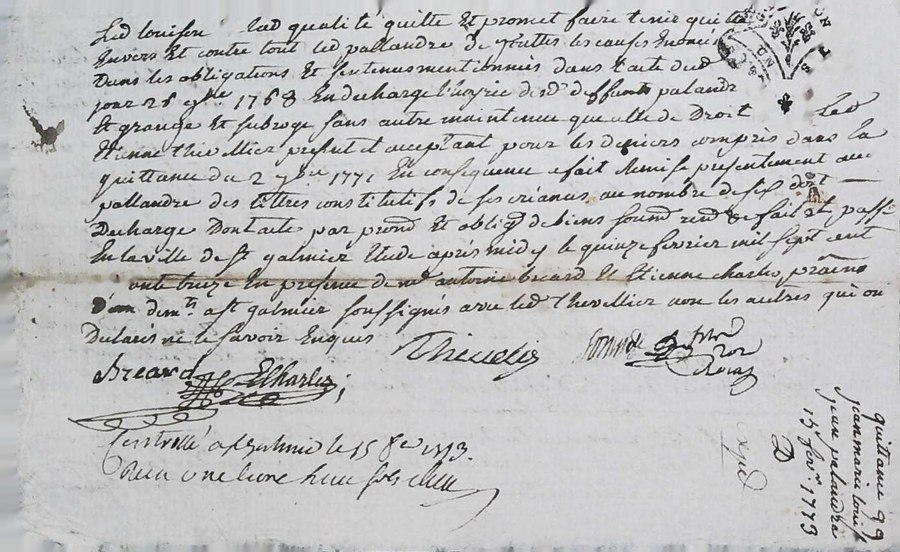 Led louisfere lad qualité quitte Et promet faire tenir quitte
Envers Et contre tout led pallandre de touttes les causes Enoncé
Dans les obligations Et sentences mentionnées dans l'acte dud
jour 26 9bre 1768 En decharge l'hoyrie dud deffunt palandre
Et grange Et subroge sans autre maintenue que celle de Droit Led
Etienne thevellier present et acceptant pour les deniers compris dans la
quittance du 2 9bre 1771 En consequence a fait Remise presentement aud
pallandre des tittres constitutifs de ses créances au nombre de six dont
Decharge Dont acte par prom Et oblig de biens soum ren &c fait Et passé
En la ville de St galmier Etude après midy le quinze fevrier mil sept cent
soixante treize En presence de me antoine breard Et Etienne charles
dem.ts a St galmier soussignés avec led Thevellier non les autres qui ont
Declarés ne le savoir Enquis
Thevellier
Breard ECharles
Controllé a St Galmier le 15 fer 1773.
Reçu une livre huit sols
quittance
jean marie louis
jean palandre
15 fevr 1773
D
Exped